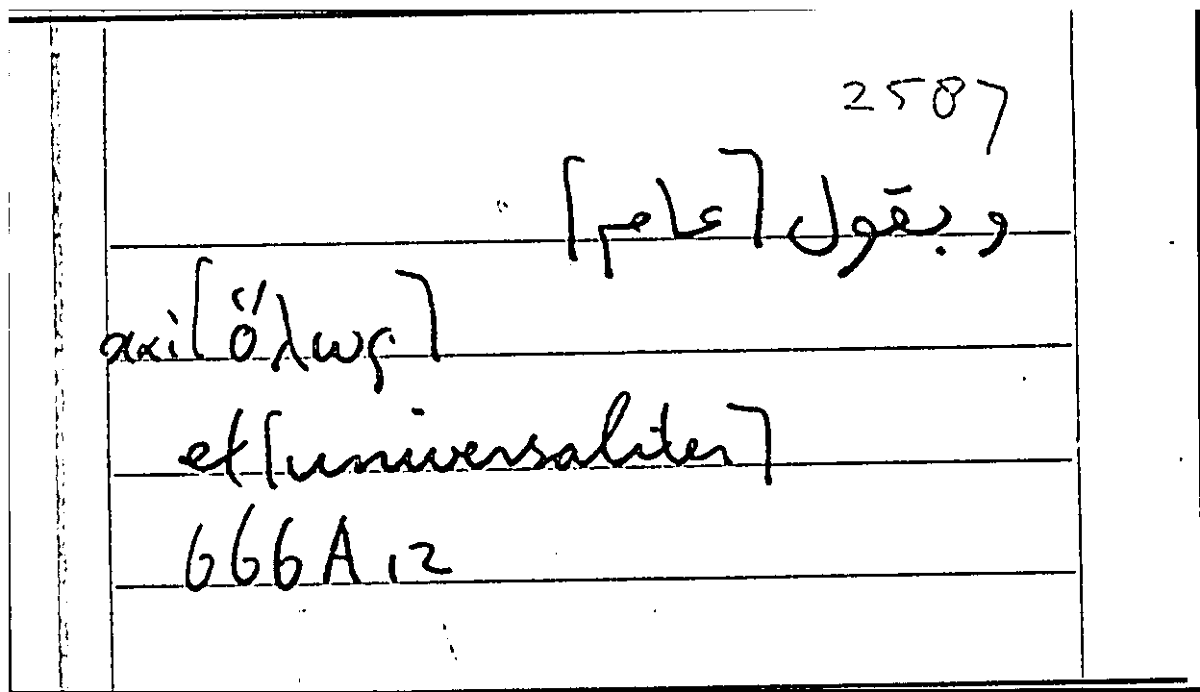 2587
وبقول [عام]
καὶ [ὅλως]
et [universaliter]
666A12